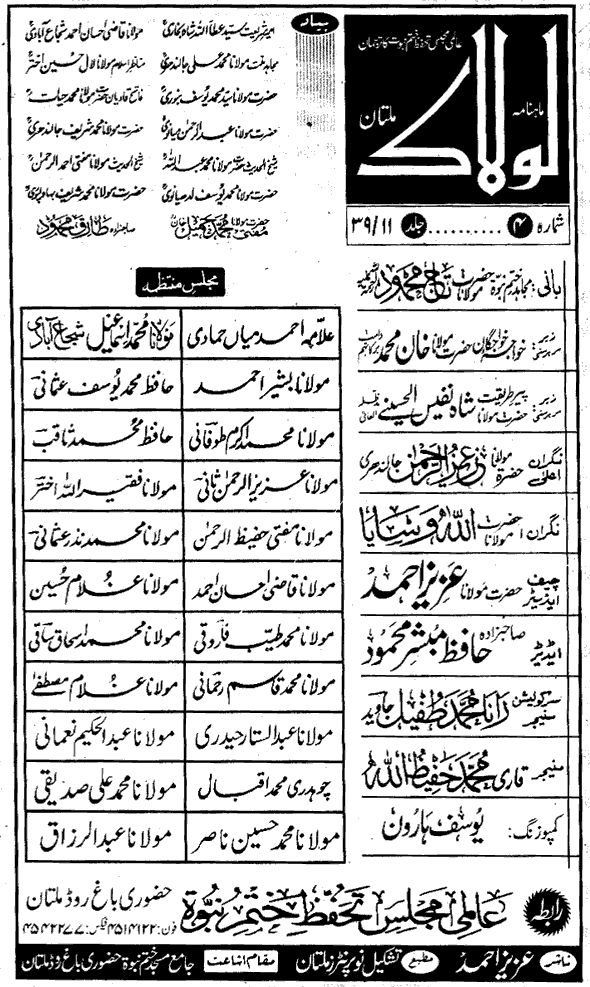 عالمی مجلس تحفظ ختم نبوت کا ترجمان
ماہنامہ
لولاک
ملتان
شمارہ ۴ .......... جلد ۳۹/۱۱
بیاد
امیر شریعت سید عطاء اللہ شاہ بخاری مولانا قاضی احسان احمد شجاع آبادی
مجاہد ملت مولانا محمد علی جالندھری مناظر اسلام مولانا لال حسین اختر
حضرت مولانا سید محمد یوسف بنوری فاتح قادیان حضرت مولانا محمد حیات
حضرت مولانا عبدالرحمن میانوی حضرت مولانا محمد شریف جالندھری
شیخ الحدیث حضرت مولانا محمد عبداللہ شیخ الحدیث مولانا مفتی احمد الرحمن
حضرت مولانا محمد یوسف لدھیانوی حضرت مولانا محمد شریف بہاولپوری
حضرت مولانا مفتی محمد جمیل خان صاحبزادہ طارق محمود
بانی: مجاہد ختم نبوۃ حضرت مولانا تاج محمود
زیر سرپرستی: خواجہ خواجگان حضرت مولانا خان محمد
زیر سرپرستی: پیر طریقت حضرت مولانا شاہ نفیس الحسینی
نگران اعلیٰ: حضرت مولانا عزیز الرحمن جالندھری
نگران: حضرت مولانا اللہ وسایا
چیف ایڈیٹر حضرت مولانا عزیز احمد
ایڈیٹر صاحبزادہ حافظ مبشر محمود
سرکولیشن منیجر رانا محمد طفیل جاوید
منیجر: قاری محمد حفیظ اللہ
کمپوزنگ: یوسف ہارون
مجلس منتظمہ
علامہ احمد میاں حمادی مولانا محمد اسماعیل شجاع آبادی
مولانا بشیر احمد حافظ محمد یوسف عثمانی
مولانا محمد اکرم طوفانی حافظ محمد ثاقب
مولانا عزیز الرحمن ثانی مولانا فقیر اللہ اختر
مولانا مفتی حفیظ الرحمن مولانا محمد نذر عثمانی
مولانا قاضی احسان احمد مولانا غلام حسین
مولانا محمد طیب فاروقی مولانا محمد اسحاق ساقی
مولانا محمد قاسم رحمانی مولانا غلام مصطفےٰ
مولانا عبدالستار حیدری مولانا عبدالحکیم نعمانی
چوہدری محمد اقبال مولانا محمد علی صدیقی
مولانا محمد حسین ناصر مولانا عبدالرزاق
رابطہ
عالمی مجلس تحفظ ختم نبوۃ حضوری باغ روڈ ملتان
فون: ۴۵۱۴۱۲۲ فیکس: ۴۵۴۲۲۷۷
ناشر عزیز احمد مطبع تشکیل نو پرنٹرز ملتان مقام اشاعت جامع مسجد ختم نبوۃ حضوری باغ روڈ ملتان